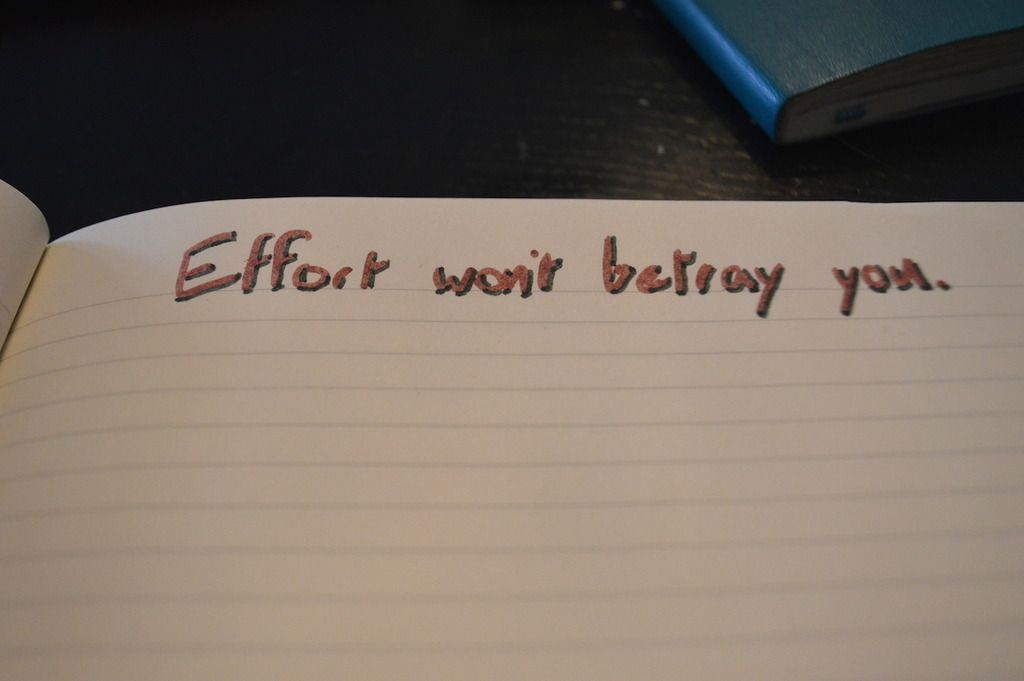 Effort won't betray you.